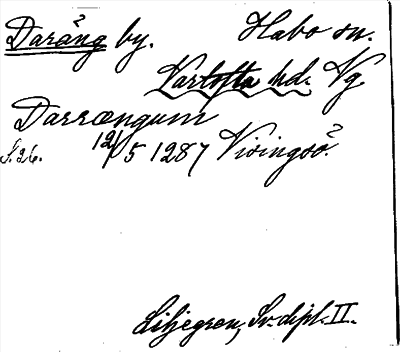 Daräng by. Habo sn.
Vartofta hd. Vg
Darrængum
S. 26. 12/5 1287 Visingsö.
Liljegren, Sv. dipl. II.